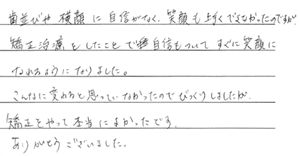 歯並びや横顔に自信がなく、笑顔も上手くできなかったのですが
矯正治療をしたことで自信もついてすぐに笑顔に
なれるようになりました。
こんなに変われると思っていなかったのでびっくりしましたが、
矯正をやって本当によかったです。
ありがとうございました。